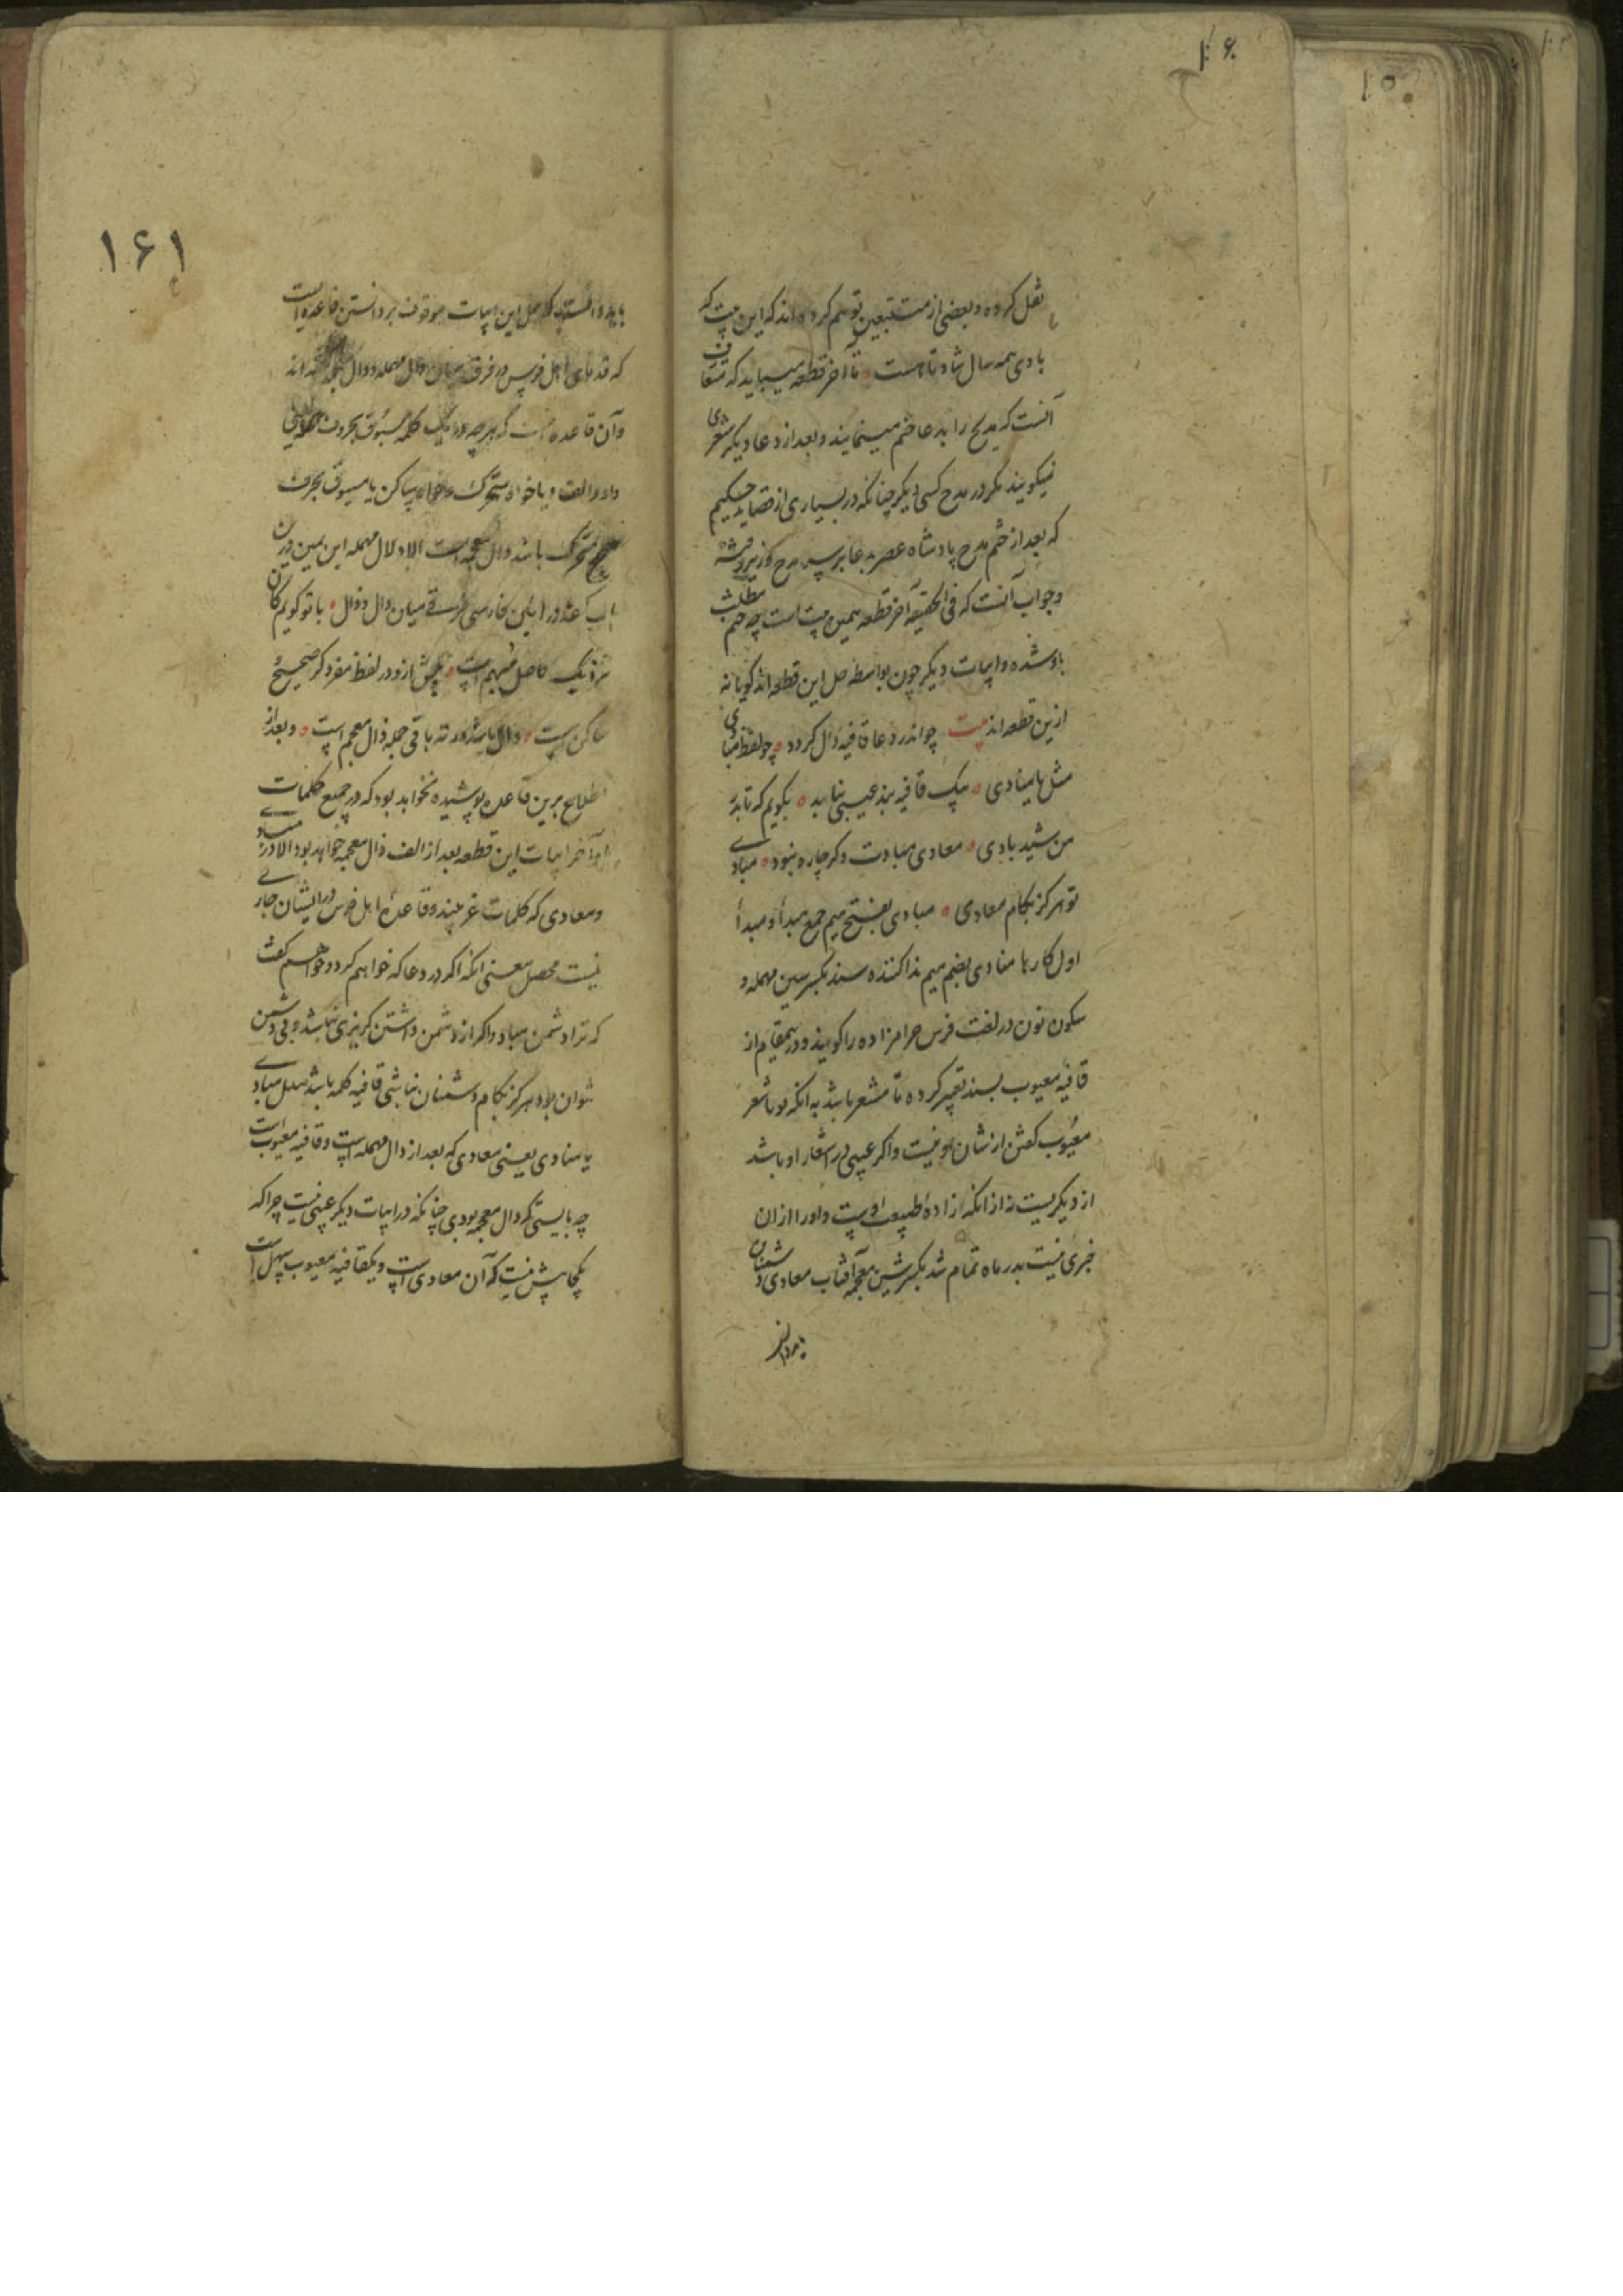 ۱۰۶
نقل کرده و بعضی از متتبعین توهم کرده اند که این بیت که
بادی همه سال شاد تا هست تا آخر قطعه میباید که متعارف
آنست که مدیح را بدعا ختم مینمایند و بعد از دعا دیگر شعری
نمیکویند مکر در مدح کسی دیکر چنانکه در بسیاری از قصاید حکیم
که بعد از ختم مدح پادشاه عصر بدعا بر سر مدح وزیر رفته
وجواب آنست که فی الحقیقه آخر قطعه همین بیت است چه ختم مطلب
باو شده و ابیات دیکر چون بواسطه حل این قطعه اند کویا نه
ازین قطعه اند بیت چو اندر دعا قافیه دال کردد چو لفظ مبادی
مثل یا منادی بیک قافیه بند عیبی نیاید بکویم که تا بدر
من شید بادی معادی مبادت وکر چاره نبود مبادی
تو هرکز بکام معادی مبادی بفتح میم جمع مبدأ و مبدأ
اول کارها منادی بضم میم ندا کننده سند بکسر سین مهمله و
سکون نون در لغت فرس حرامزاده را کویند و درینمقام از
قافیه معیوب بسند تعبیر کرده تا مشعر باشد به آنکه فوتا شعر
معیوب کفتن از شان او نیست و اکر عیبی در اشعار او باشد
از دیکریست نه از آنکه از اده طبیعت اوست و او را از ان
خبری نیست بدر ماه تمام شد بکسر شین معجمه آفتاب معادی دشمنان
باید دانست
۱۶۱
باید دانست که حل این ابیات موقوف بر دانستن قاعده ایست
که قدمای اهل فرس در فرق میان دال مهمله و ذال معجمه کفته اند
وآن قاعده اینست که هرچه در یک کلمه مسبوق بحروف
واو و الف و یا خواه متحرک و خواه ساکن یا مسبوق بحرف
صحیح متحرک باشد ذال معجمه است والا دال مهمله ابن یمین درین
باب کفته در زبان فارسی فرق میان دال و ذال با تو کویم کان
نزدیک فاضل مبهم است پیش ازو در لفظ مفرد کر صحیح
ساکن است دال باشد ورنه باقی جمله ذال معجم است و بعد از
اطلاع برین قاعده پوشیده نخواهد بود که در جمیع کلمات
آخر ابیات این قطعه بعد از الف ذال معجمه خواهد بود الا در مبادی
ومعادی که کلمات عربیند و قاعده اهل فرس در ایشان جاری
نیست محصل معنی آنکه اکر در دعا که خواهم کرد و خواهم کفت
که ترا دشمن مباد و اکر از دشمن داشتن کریزی نباشد و بی دشمن
نتوان بود هرکز بکام دشمنان نباشی قافیه کلمه باشد مثل مبادی
یا منادی یعنی معادی که بعد از دال مهمله است و قافیه معیوب است
چه بایستی که ذال معجمه بودی چنانکه در ابیات دیکر عیبی نیست چرا که
یکجا بیش نیست که آن معادی است و یکقافیه معیوب سهل است